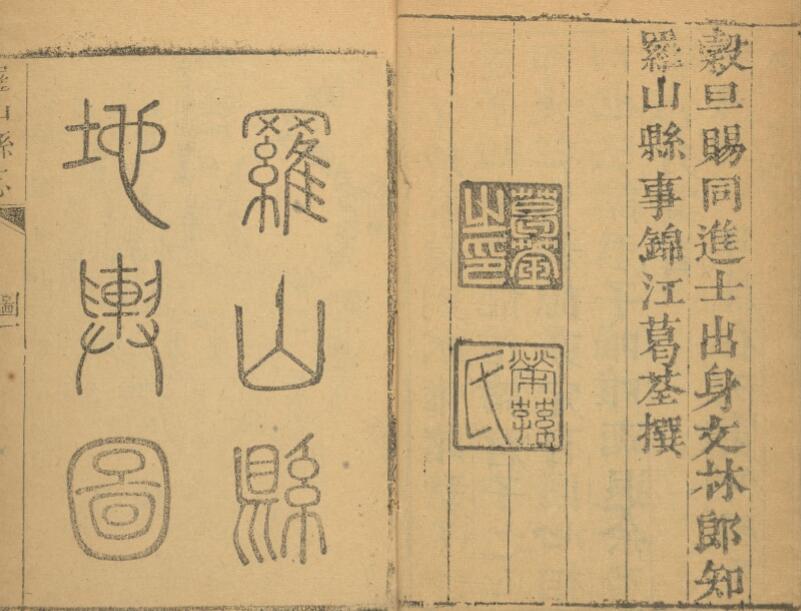 穀旦賜同進士出身文林郎知
羅山縣事錦江葛荃撰
葛荃之印
氏
羅山縣
地輿圖
羅山縣志
圖一